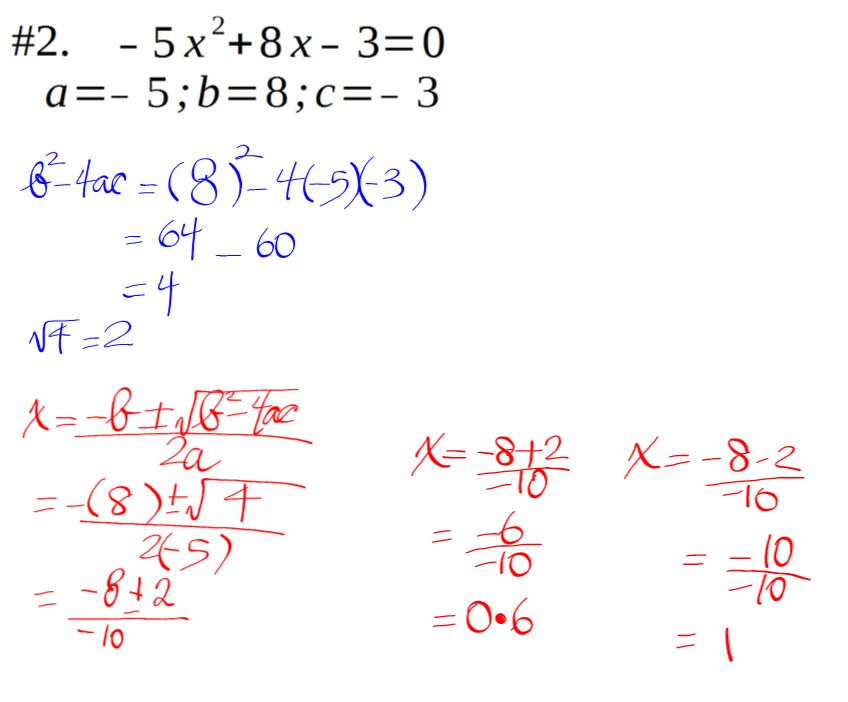 #2. – 5x²+8x– 3=0
a=– 5;b=8;c=– 3
b²-4ac = (8)²-4(-5)(-3)
= 64 - 60
= 4
√4 = 2
x = (-b ± √(b²-4ac))/(2a)
= (-(8) ± √4)/(2(-5))
= (-8 ± 2)/(-10)
x = (-8+2)/(-10)
= (-6)/(-10)
= 0•6
x = (-8-2)/(-10)
= (-10)/(-10)
= 1